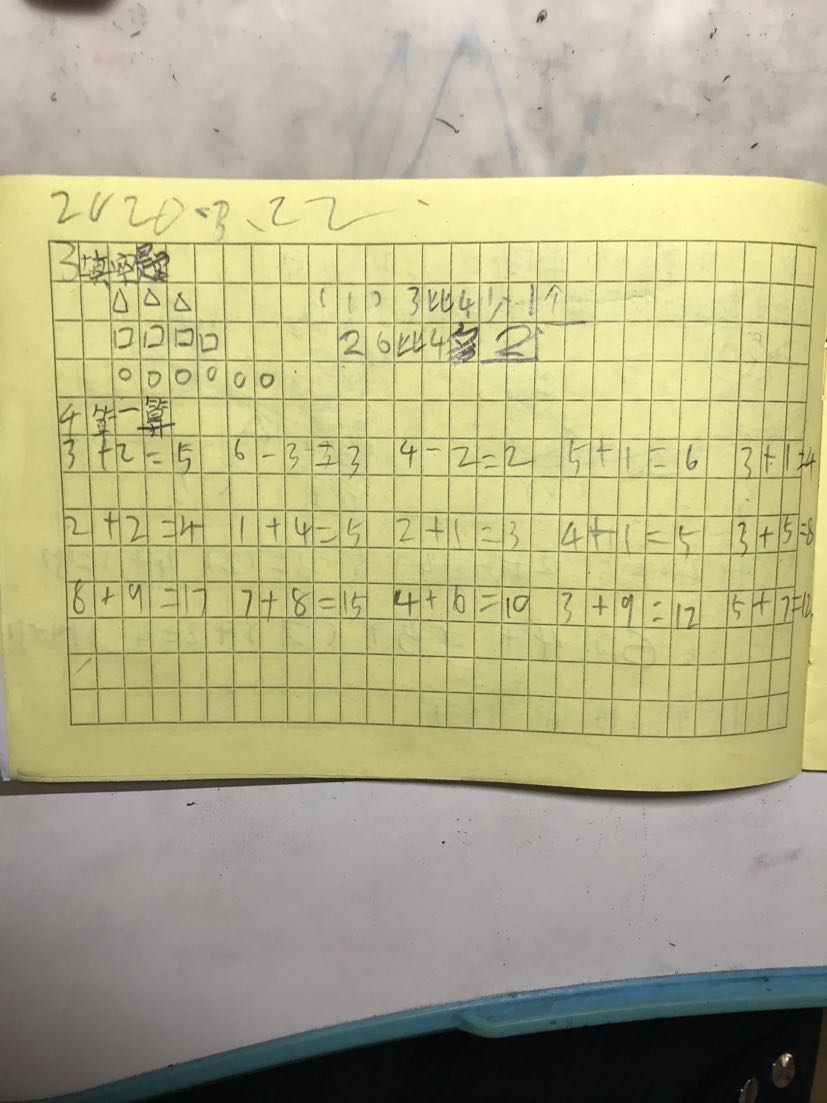 2020.3.22
3填空题
△ △ △ (1) 3比4少1个
□ □ □ □ 2 6比4多2个
○ ○ ○ ○ ○ ○
4 算一算
3+2=5 6-3=3 4-2=2 5+1=6 3+1=4
2+2=4 1+4=5 2+1=3 4+1=5 3+5=8
8+9=17 7+8=15 4+6=10 3+9=12 5+7=12